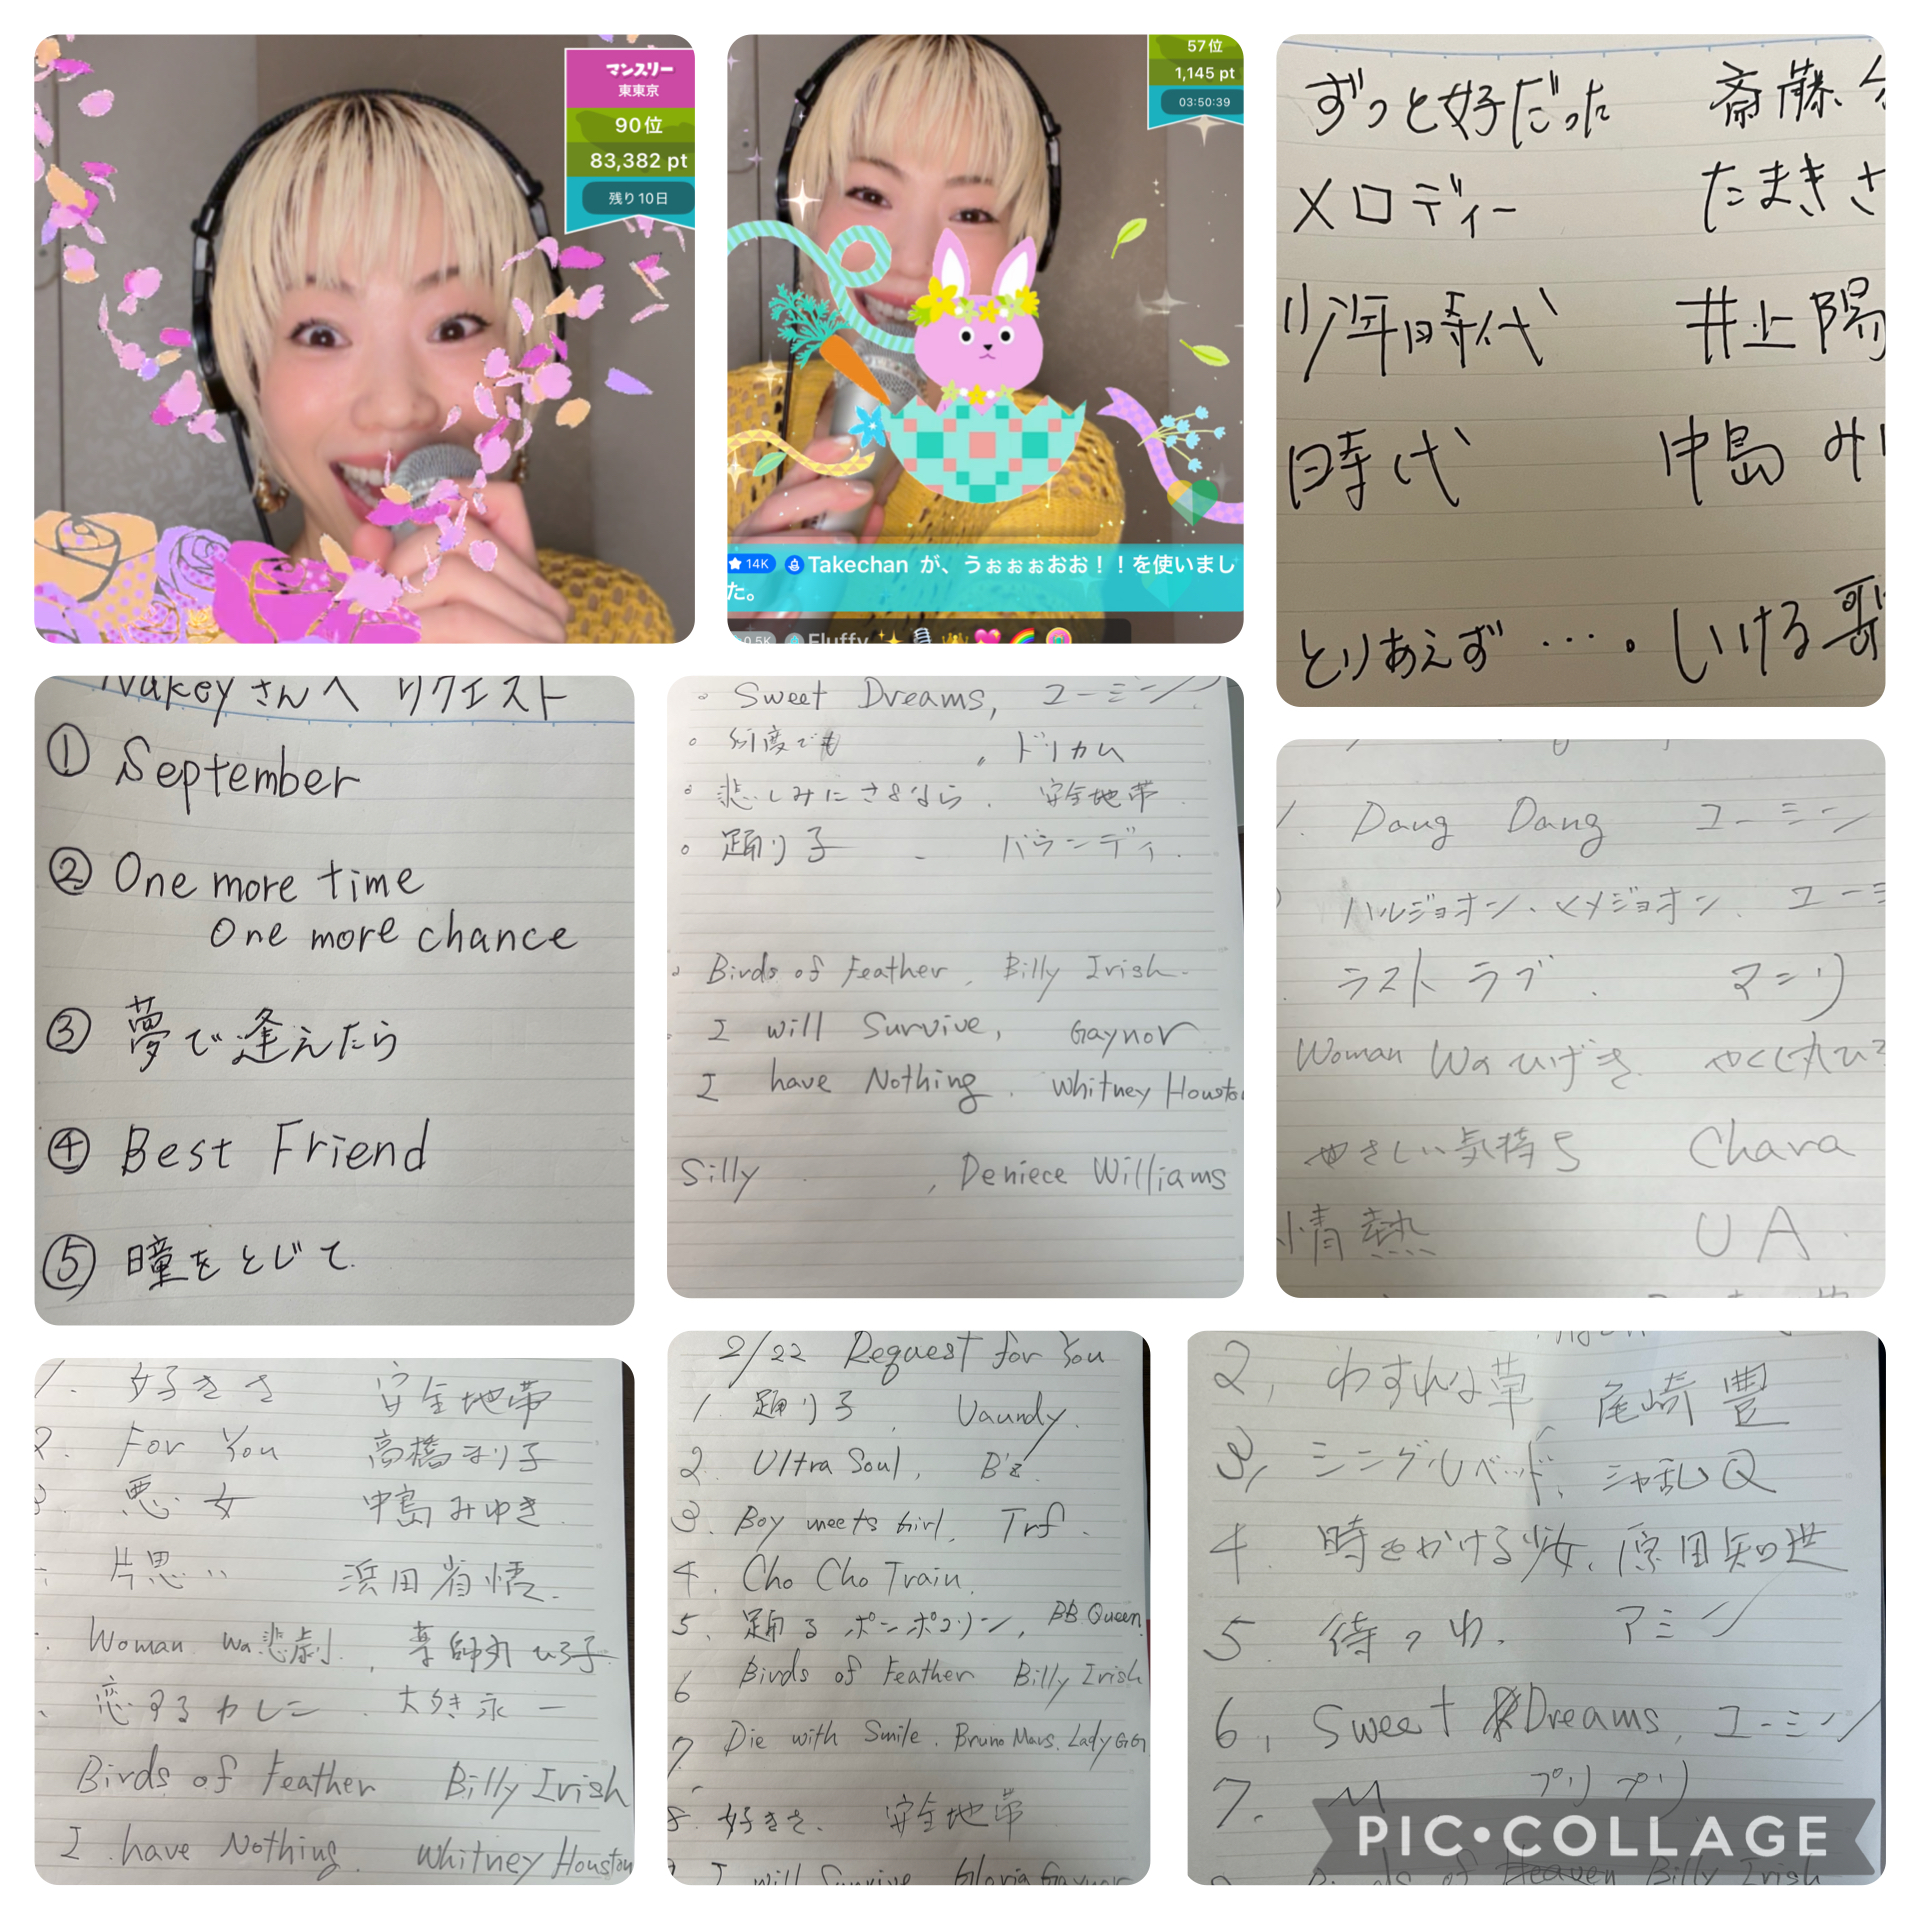 マンスリー
東東京
90位
83,382 pt
残り10日
57位
1,145 pt
03:50:39
14K Takechan が、うぉぉぉおお！！を使いまし
た。
0.5K Fluffy
ずっと好きだった 斎藤
メロディー たまきさ
少年時代 井上陽
時代 中島 み
とりあえず ‥‥。いける歌
Nakeyさんへ リクエスト
① September
② One more time
One more chance
③ 夢で逢えたら
④ Best Friend
⑤ 瞳をとじて
。Sweet Dreams, ユーミン
。何度でも 。ドリカム
。悲しみにさよなら. 安全地帯
。踊り子 - バウンディ.
。Birds of Feather, Billy Irish.
I will Survive, Gaynor
I have Nothing. Whitney Houston
Silly , Deniece Williams
1. Dang Dang ユーミン
ハルジョオン、ヒメジョオン. ユーミ
ラスト ラブ. マニリ
Woman Wa ひげき. やくし丸ひろ
やさしい気持ち Chara
情熱 UA.
1. 好きさ 安全地帯
2. For You 高橋まり子
3. 悪女 中島みゆき
片思い 浜田省悟.
Woman Wa悲劇. , 薬師丸ひろ子
恋するカレン. 大タき永一
Birds of Feather Billy Irish
I have Nothing. Whitney Houston
2/22 Request for You
1. 踊り子, Vaundy.
2. Ultra Soul, B'z.
3. Boy meets Girl, Trf.
4. Cho Cho Train.
5. 踊るポンポコリン, BB Queen
6 Birds of Feather Billy Irish
7. Die with Smile. Bruno Mars. Lady GG
8. 好きさ. 安全地帯
I will Survive Gloria Gaynor
2, わすれな草 尾崎豊
3, シングルベッド, シャ乱Q
4. 時をかける少女, 原田知世
5. 待つわ. アミン
6, Sweet Dreams, ユーミン
7. M プリプリ
Birds of Heaven Billy Irish
PIC•COLLAGE